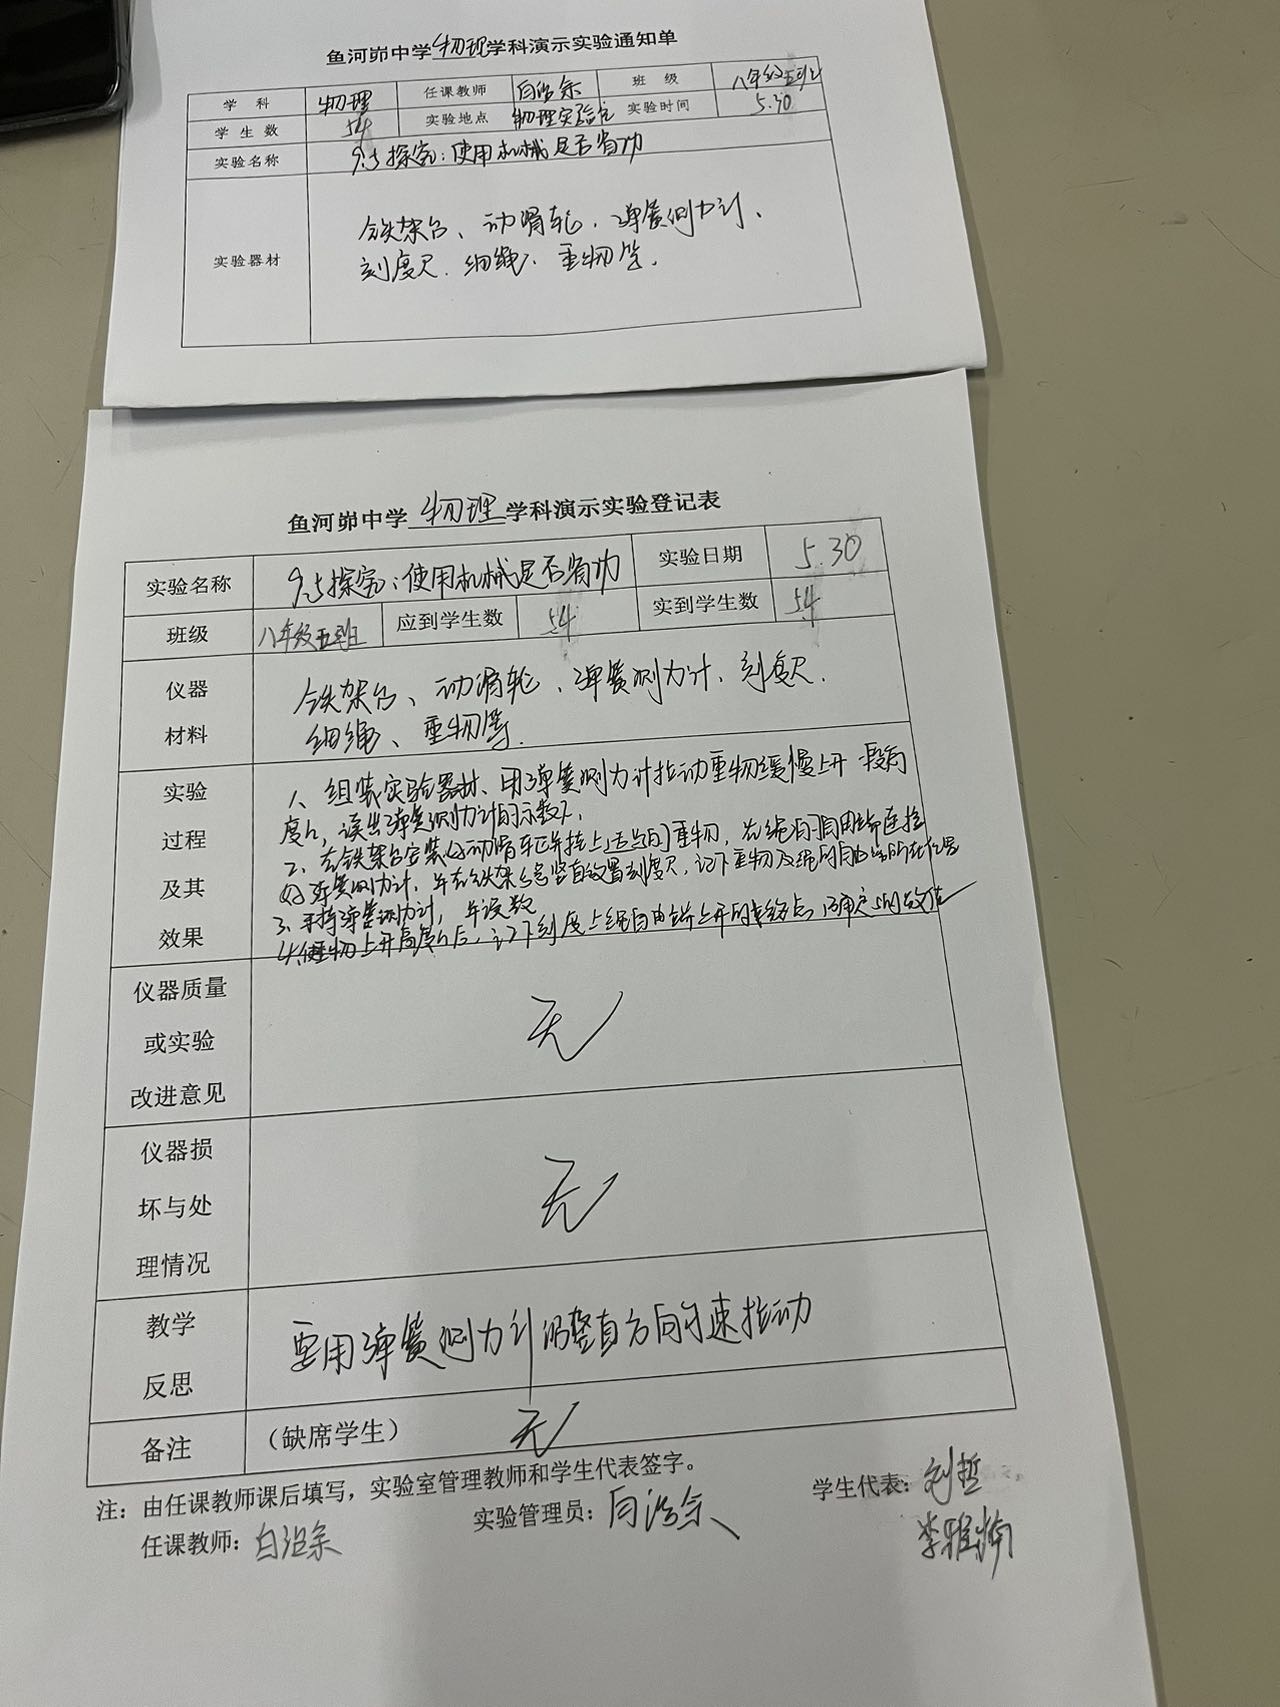 鱼河峁中学物理学科演示实验通知单
学 科 物理 任课教师 白治余 班 级 八年级五班
学 生 数 54 实验地点 物理实验室 实验时间 5.30
实验名称 9.5探究:使用机械是否省功
铁架台、动滑轮、弹簧测力计、
实验器材 刻度尺、细绳、重物等。
鱼河峁中学物理学科演示实验登记表
实验名称 9.5探究:使用机械是否省功 实验日期 5.30
班级 八年级五班 应到学生数 54 实到学生数 54
仪器 铁架台、动滑轮、弹簧测力计、刻度尺、
材料 细绳、重物等。
实验 1、组装实验器材、用弹簧测力计拉动重物缓慢上升一段高
过程 度h,读出弹簧测力计的示数。
2、在铁架台安装好动滑轮并挂上适当的重物,在绳的自由端连接
及其 好弹簧测力计,并在铁架台竖直放置刻度尺,记下重物及绳的自由端所在位置
3、手持弹簧测力计,并读数
效果 4、使重物上升高度h后,记下刻度上绳自由端上升的终点,确定S的数值
仪器质量
或实验 无
改进意见
仪器损
坏与处 无
理情况
教学 要用弹簧测力计沿竖直方向匀速拉动
反思
备注 (缺席学生) 无
注:由任课教师课后填写,实验室管理教师和学生代表签字。
任课教师:白治余 实验管理员:白治余 学生代表:刘哲
李雅楠